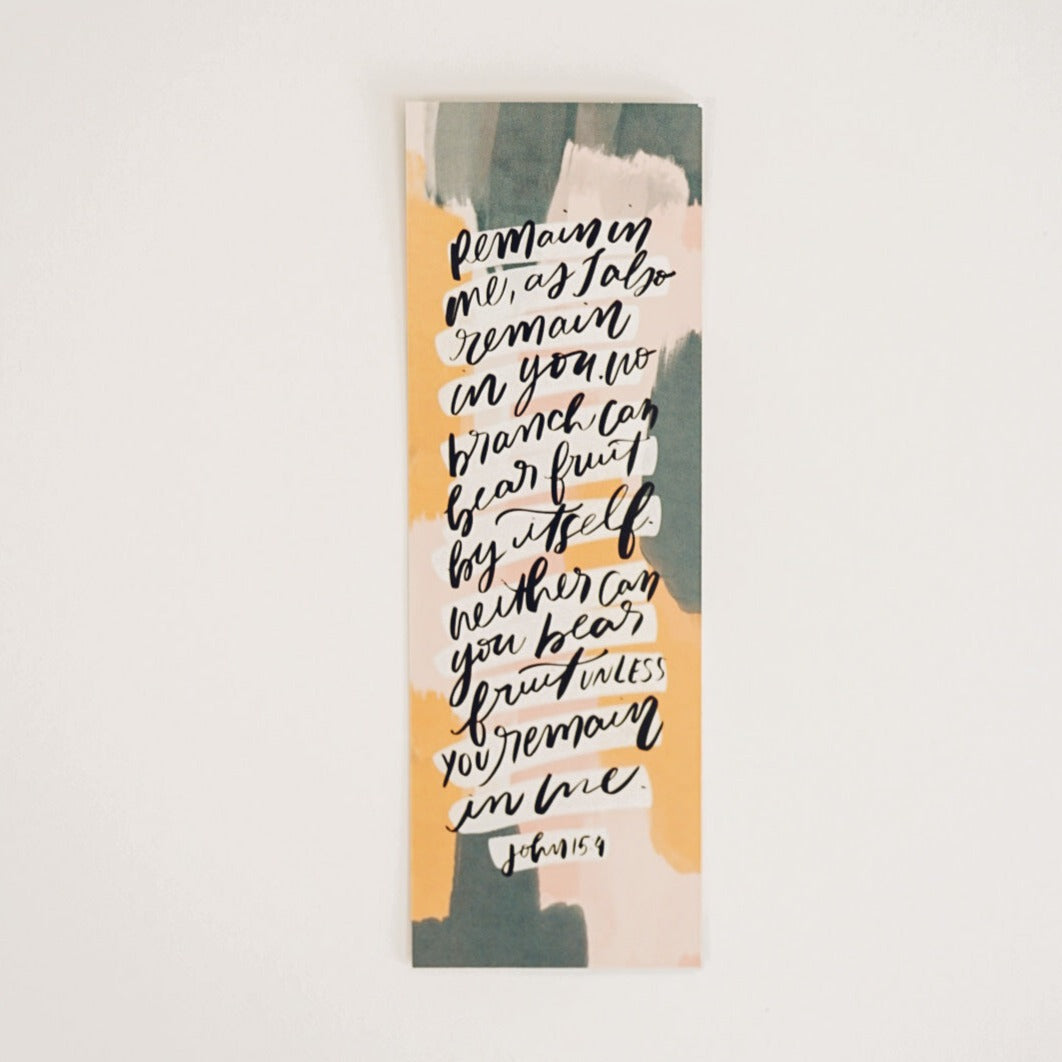 Remain in
me, as I also
remain
in you. no
branch can
bear fruit
by itself.
neither can
you bear
fruit UNLESS
YOU remain
in me.
John 15:4